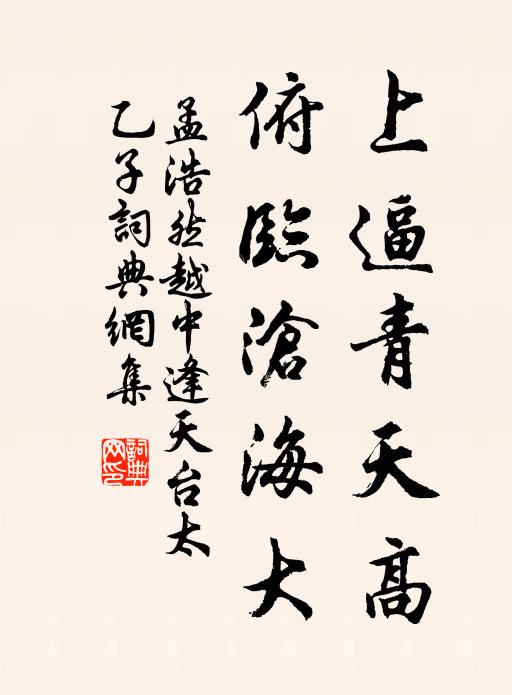 上逼青天高
俯臨滄海大
孟浩然越中逢天台太
乙子詞典網集
詞典網印